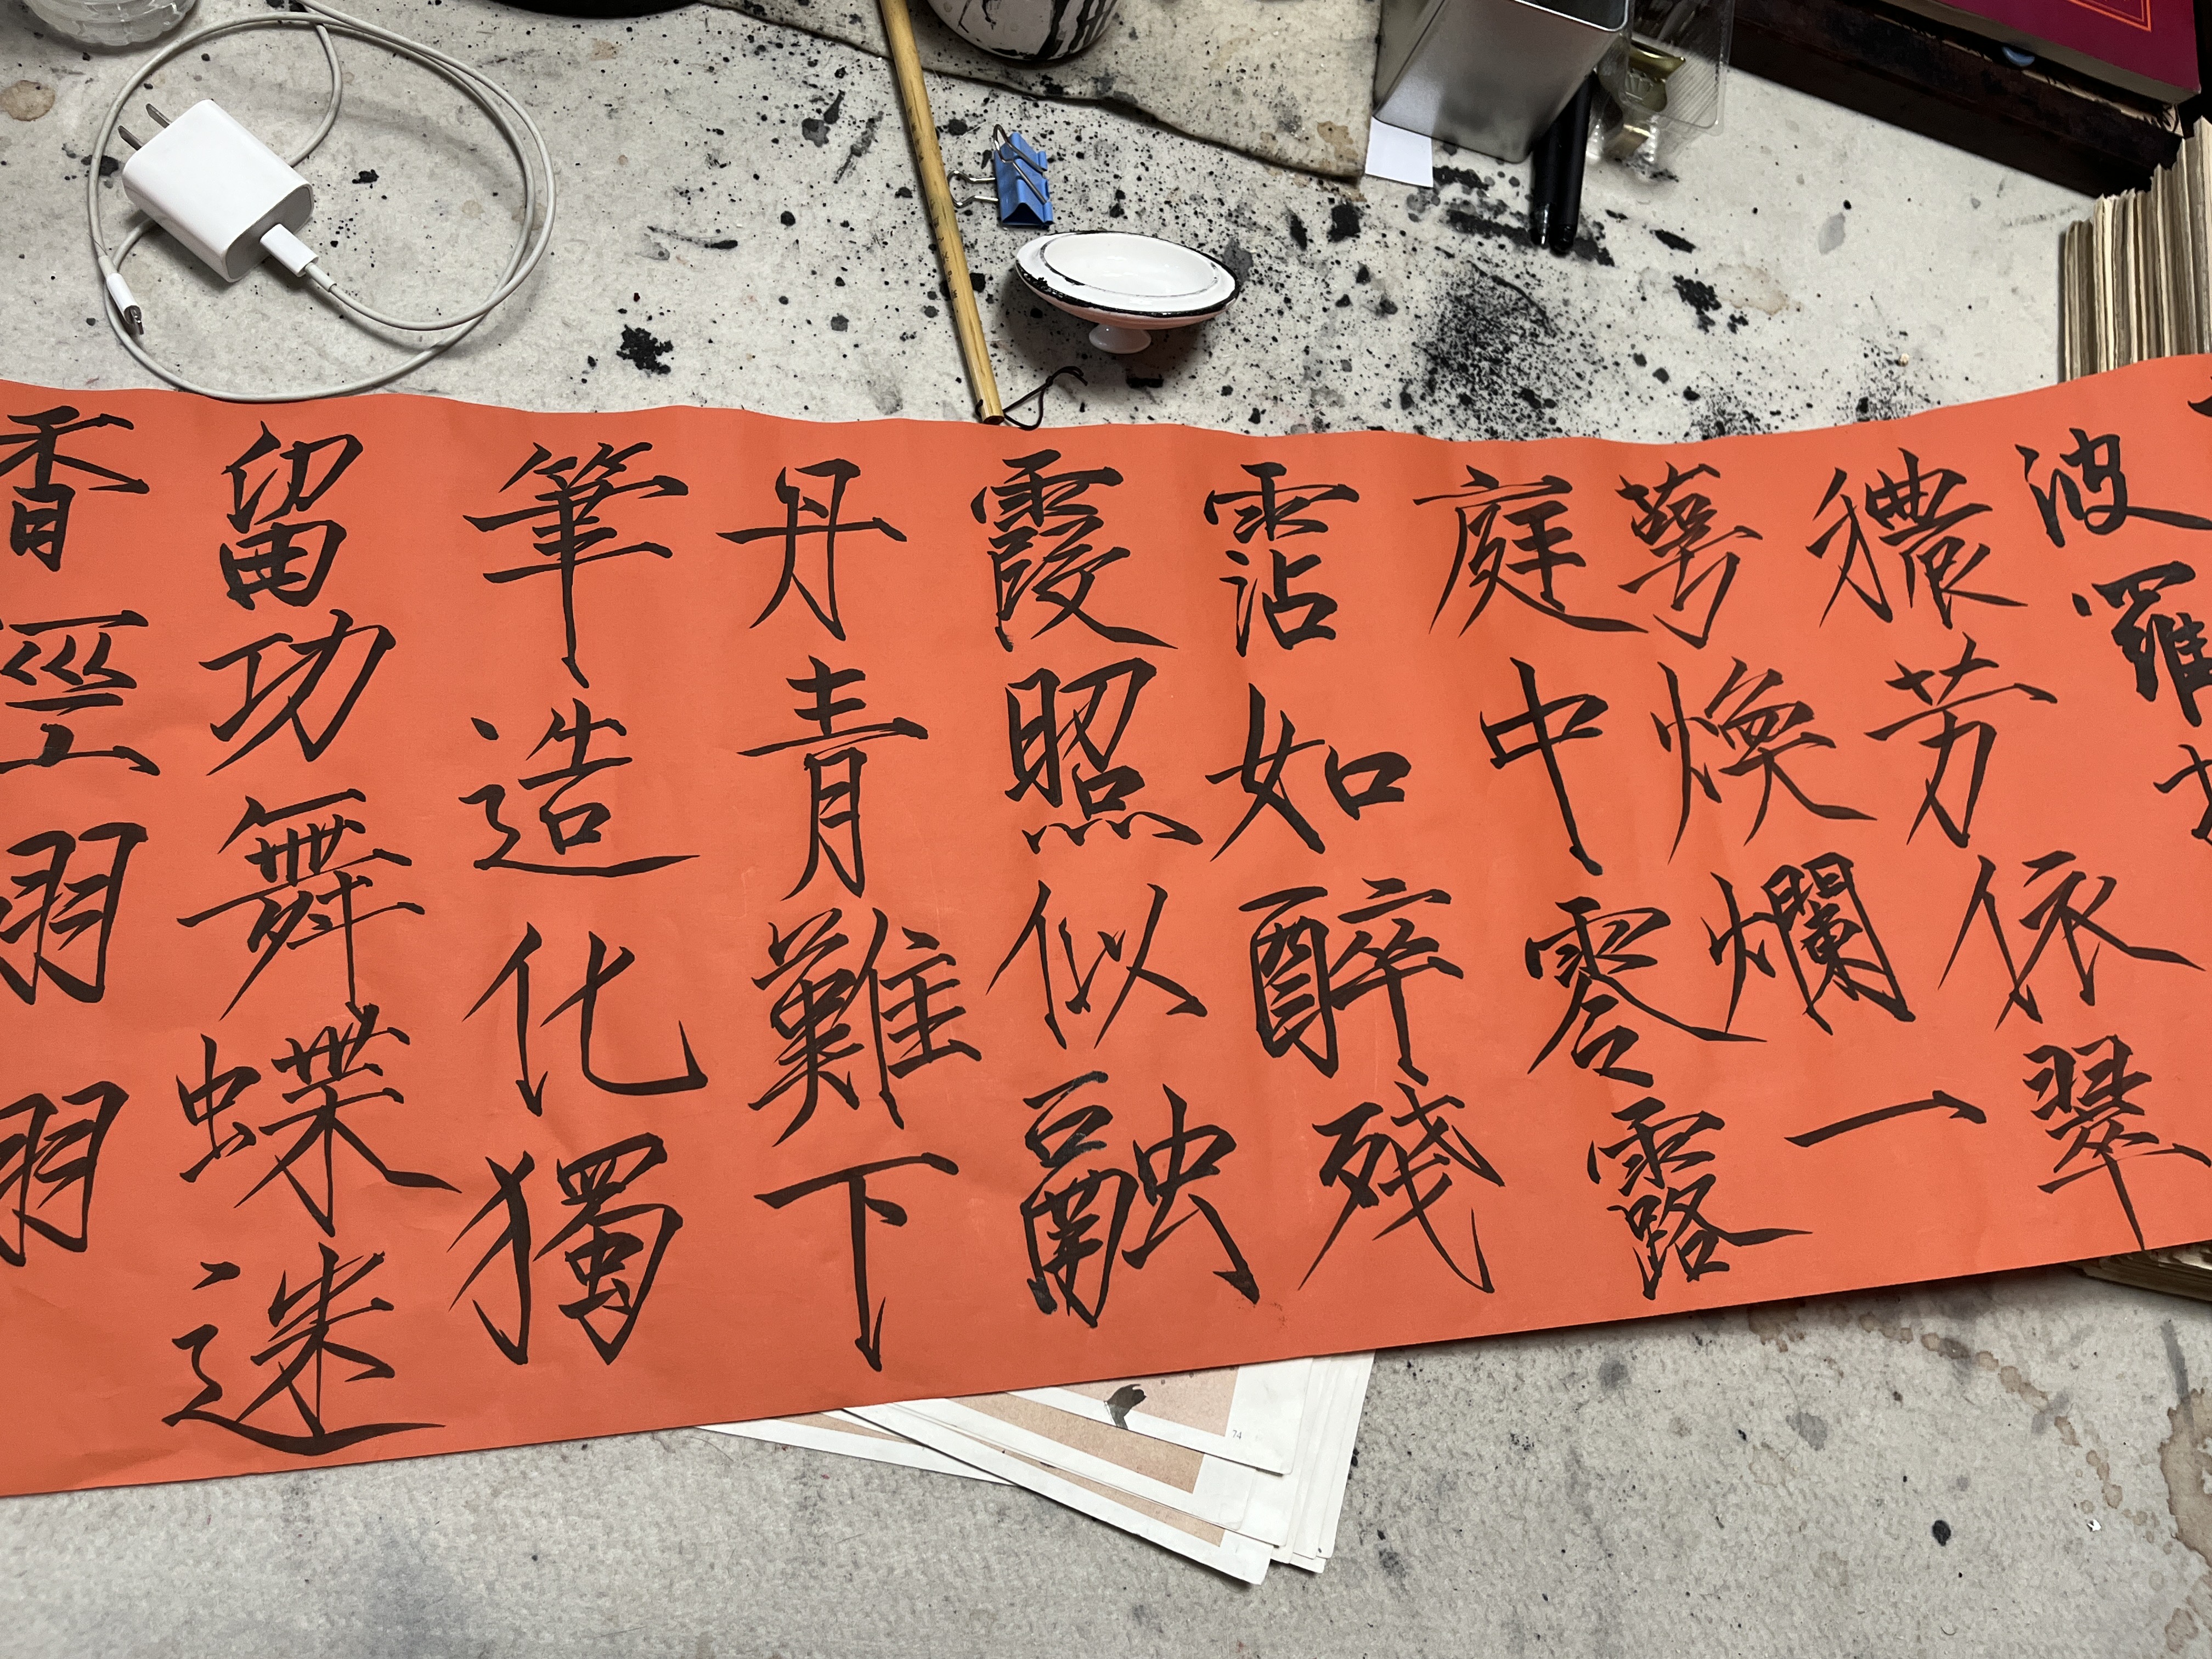 波羅
穠芳依翠
萼煥爛一
庭中零露
霑如醉殘
霞照似融
丹青難下
筆造化獨
留功舞蝶迷
香
74